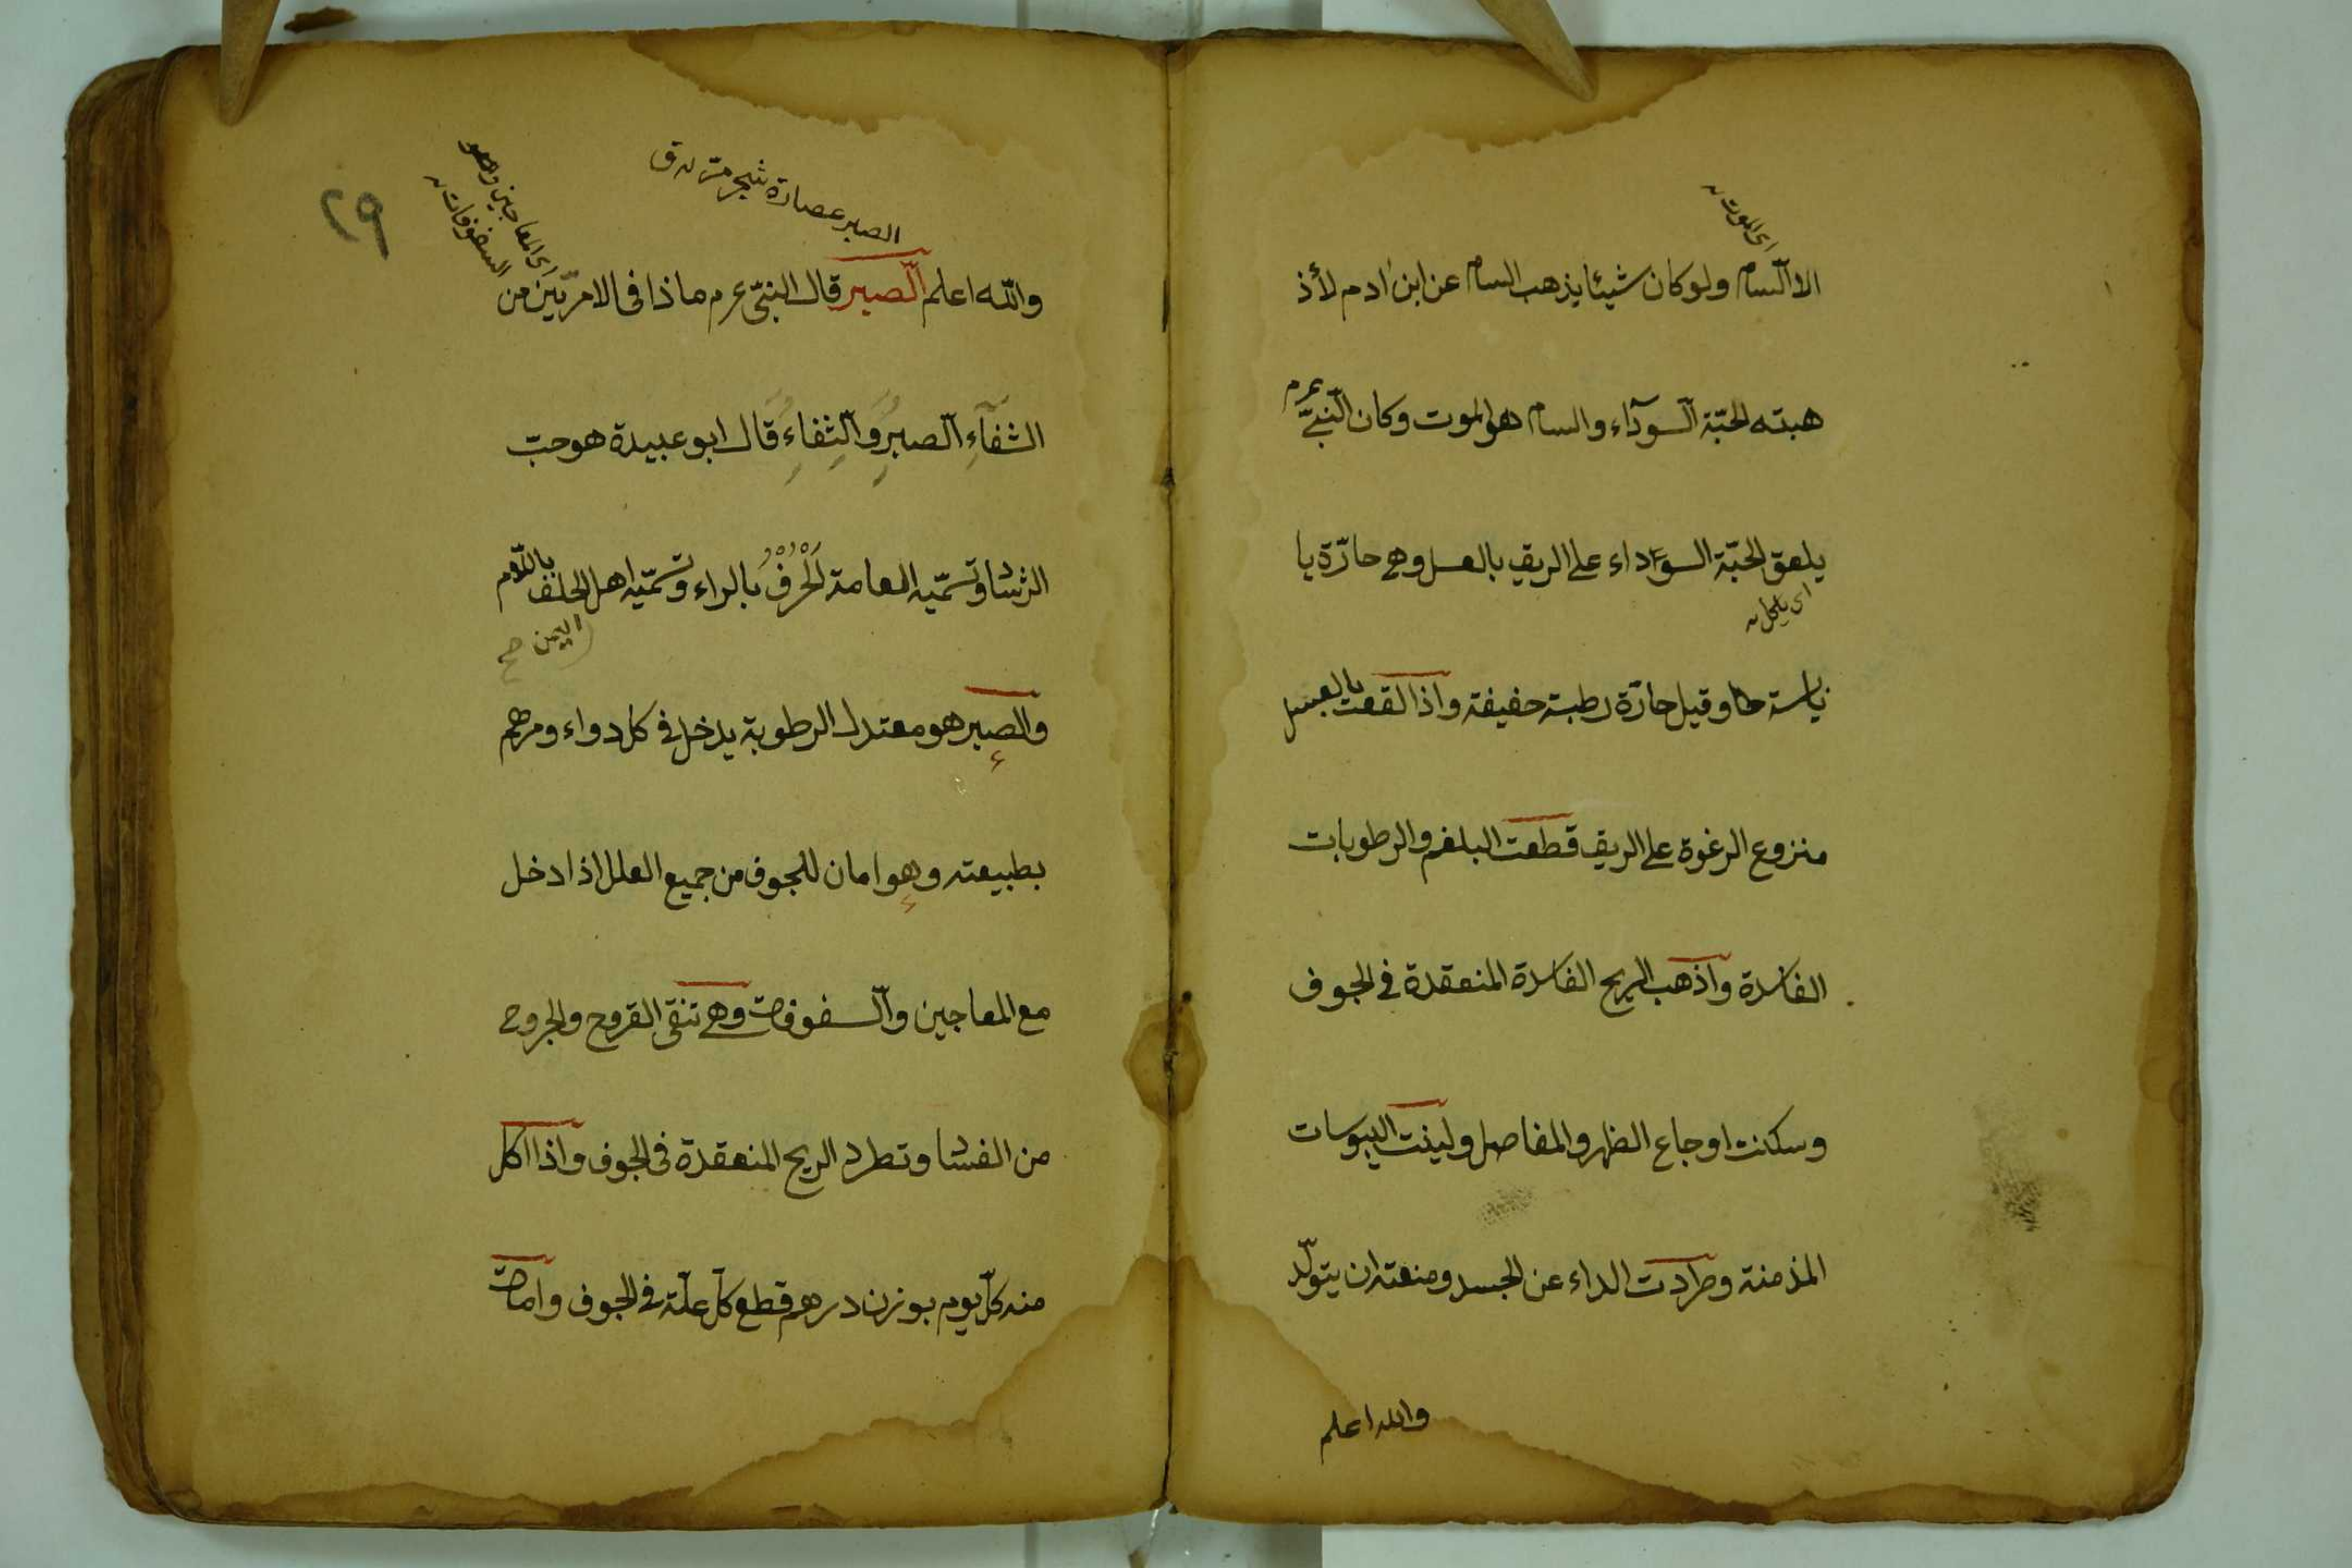 اى الموت
الا السام ولو كان شيئا يذهب السام عن ابن ادم لأذ
هبته الحبّة السوداء والسام هو الموت وكان النبىّ عم
يلعق الحبّة السوداء على الريق بالعسل وهى حارّة يا
اى ياكل
وقيل حارّة رطبة خفيفة واذا لقعت بالعسل
منزوع الرغوة على الريق قطعت البلغم والرطوبات
الفاسدة واذهب الريح الفاسدة المنعقدة فى الجوف
وسكنت اوجاع الظهر والمفاصل ولينت اليبوسات
المذمنة وطردت الداء عن الجسد ومنعته ان يتولّد
والله اعلم
الصبر عصارة شجر مرّ ق
اى المعاجين وهو
السفوفات
٢٩
والله اعلم الصبر قال النبىّ عم ماذا فى الامرّين من
الشفاءِ الصبر والثفاء قال ابو عبيدة هو حبّ
الرشاد وتسمّيه العامة الحُرْفُ بالراء وتسمّيه اهل الحلف باللام
اليمن صح
والصبر هو معتدل الرطوبة يدخل فى كل دواء ومرهم
بطبيعته وهو امان للجوف من جميع العلل اذا دخل
مع المعاجين والسفوفات وهى تنقى القروح والجروح
من الفساد وتطرد الريح المنعقدة فى الجوف واذا اكل
منه كلّ يوم بوزن درهم قطع كلّ علّة فى الجوف وامات